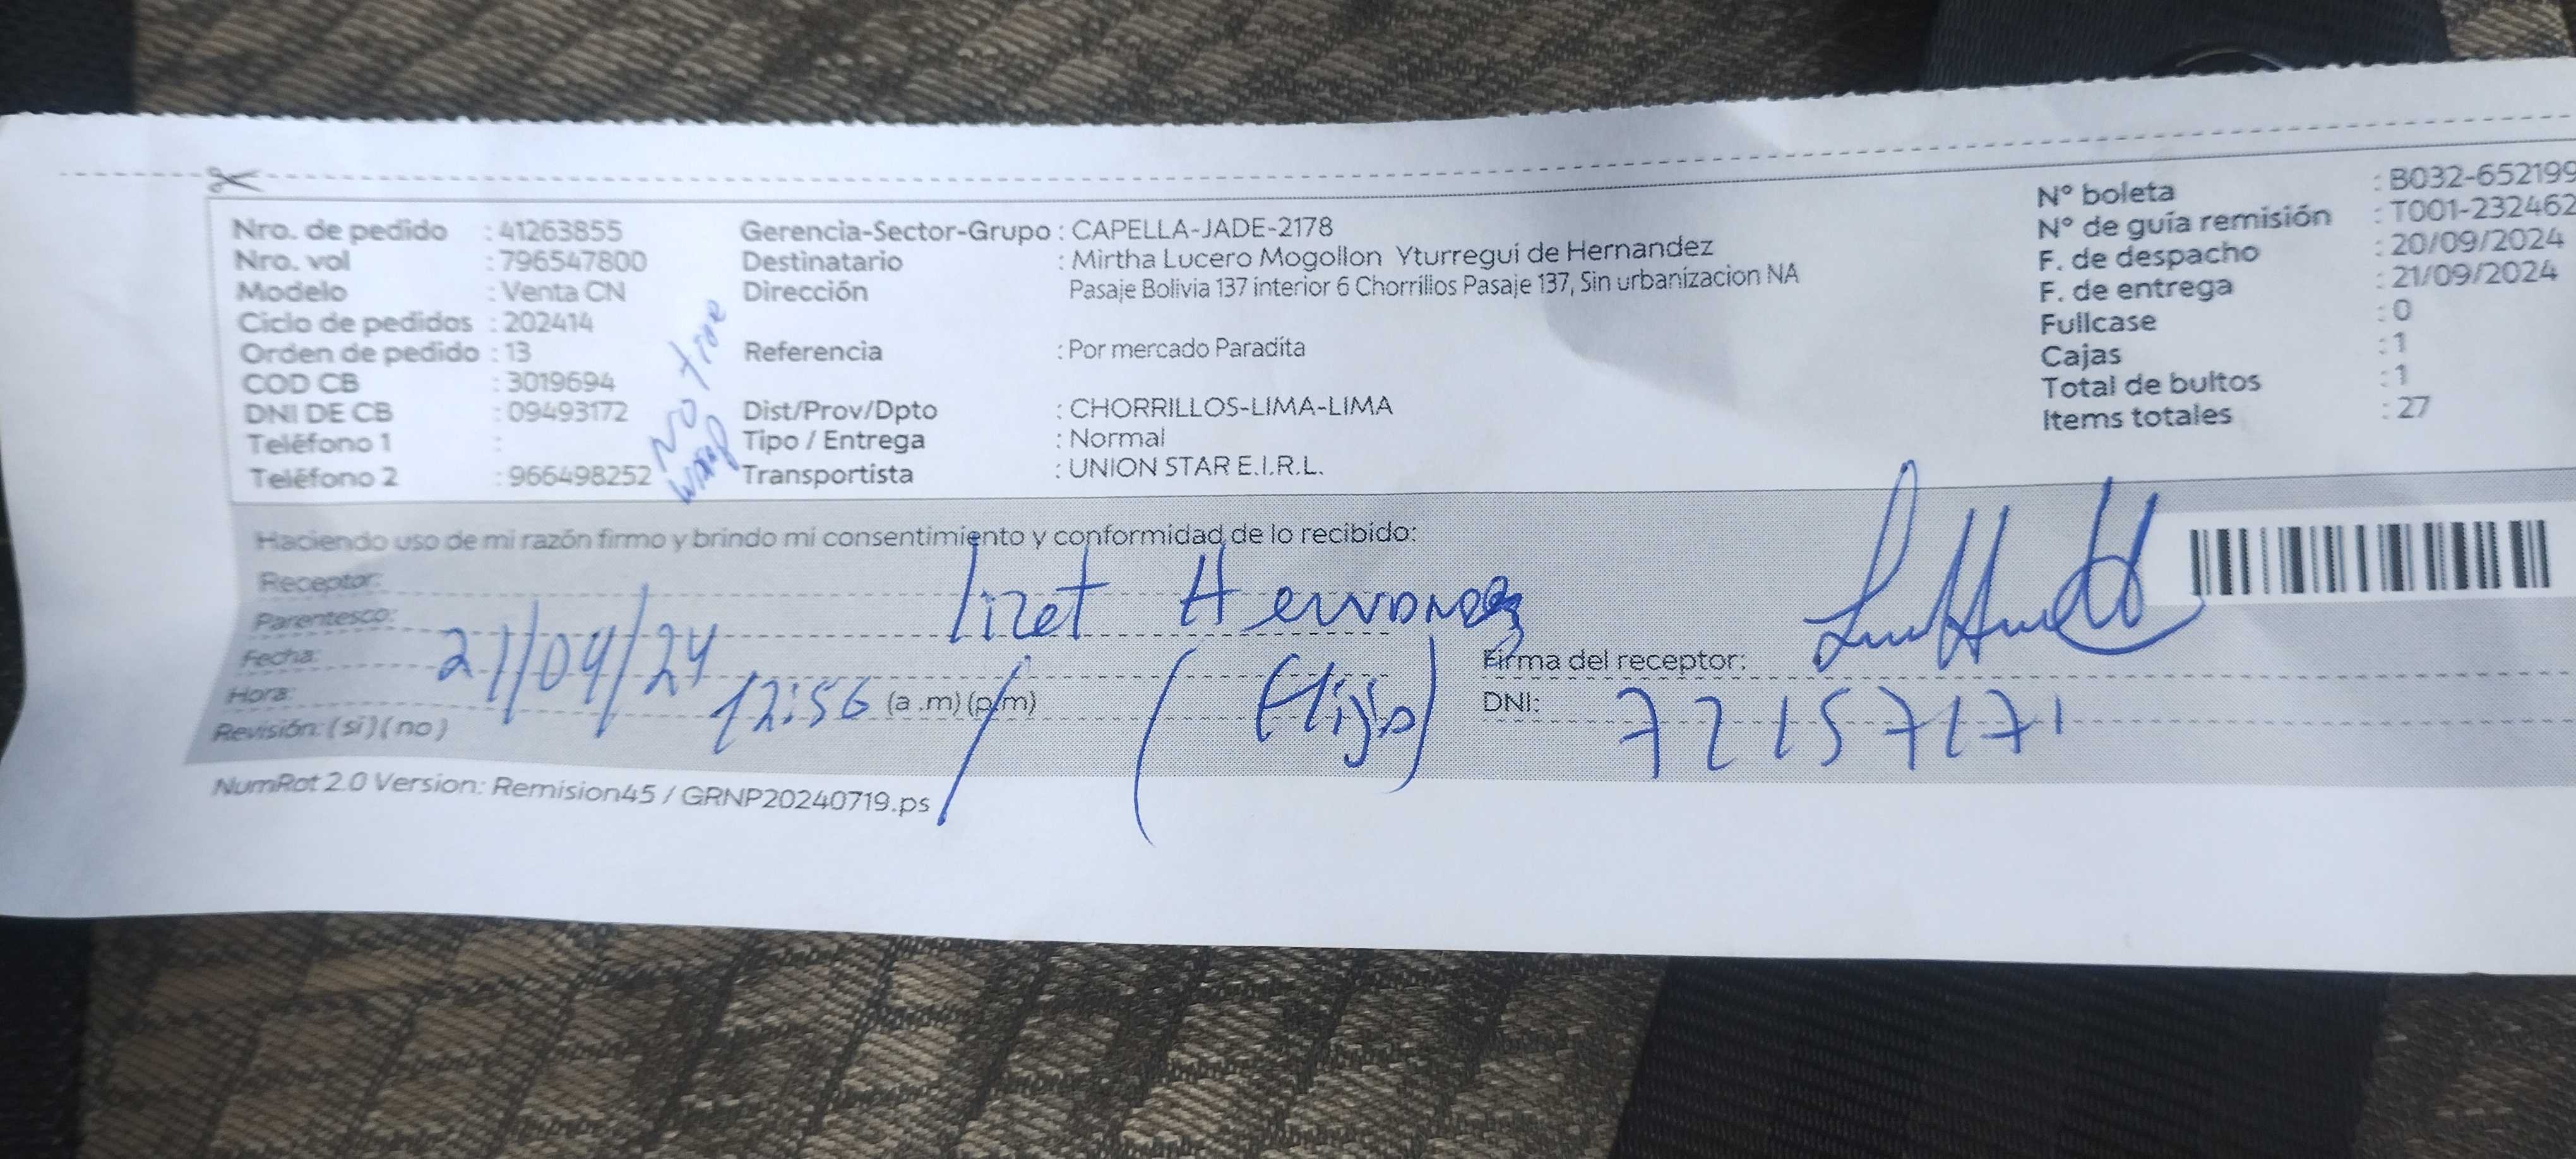 Nro. de pedido : 41263855
Nro. vol : 796547800
Modelo : Venta CN
Ciclo de pedidos : 202414
Orden de pedido : 13
COD CB : 3019694
DNI DE CB : 09493172
Teléfono 1 :
Teléfono 2 : 966498252
NO
Gerencia-Sector-Grupo : CAPELLA-JADE-2178
Destinatario : Mirtha Lucero Mogollon Yturregui de Hernandez
Dirección Pasaje Bolivia 137 interior 6 Chorrillos Pasaje 137, Sin urbanizacion NA
Referencia : Por mercado Paradita
Dist/Prov/Dpto : CHORRILLOS-LIMA-LIMA
Tipo / Entrega : Normal
Transportista : UNION STAR E.I.R.L.
N° boleta : B032-652199
N° de guía remisión : T001-232462
F. de despacho : 20/09/2024
F. de entrega : 21/09/2024
Fullcase : 0
Cajas : 1
Total de bultos : 1
Items totales : 27
Haciendo uso de mi razón firmo y brindo mi consentimiento y conformidad de lo recibido:
Receptor:
Parentesco:
Fecha: 21/09/24
Hora: 12:56 (a .m) (p/m)
Revisión: ( si ) ( no )
(Hija)
Firma del receptor:
DNI: 72157171
NumRot 2.0 Version: Remision45 / GRNP20240719.ps